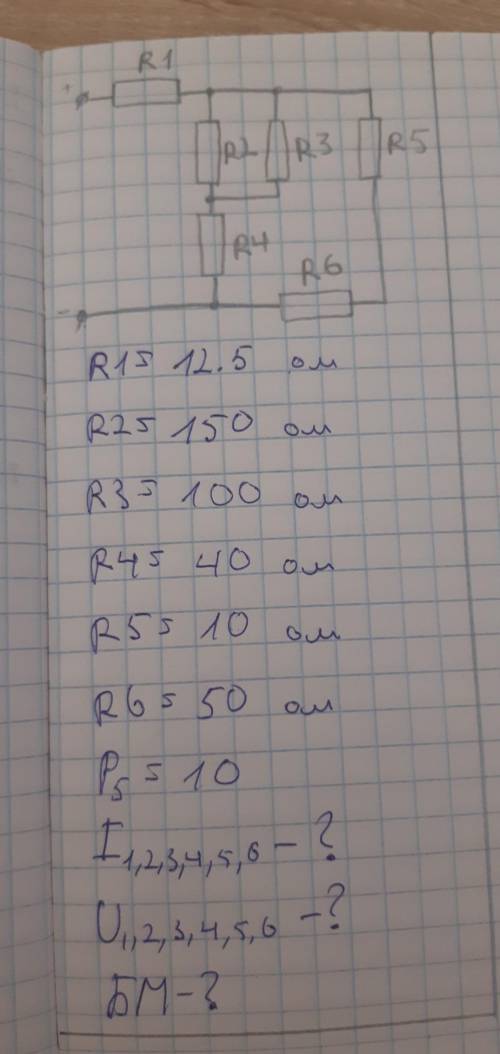 R1
+
R2 R3 R5
R4
R6
-
R1 = 12.5 ом
R2 = 150 ом
R3 = 100 ом
R4 = 40 ом
R5 = 10 ом
R6 = 50 ом
P5 = 10
I1,2,3,4,5,6 - ?
U1,2,3,4,5,6 - ?
БМ - ?